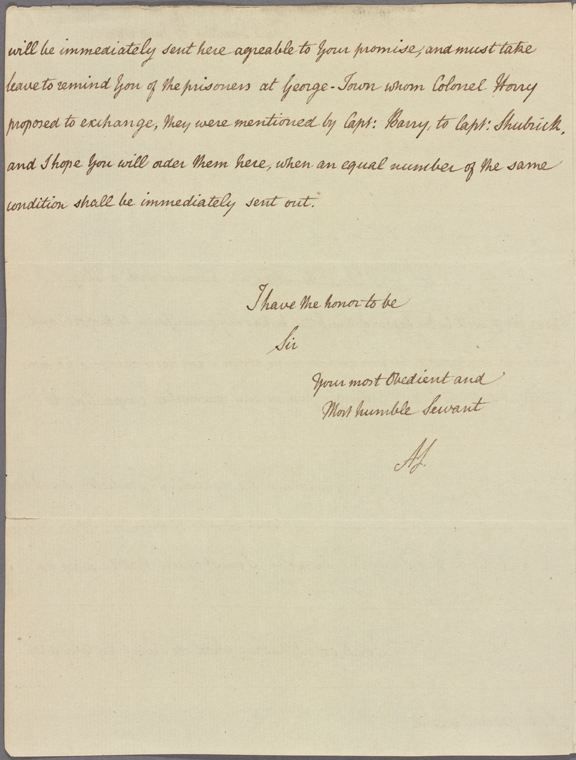 will be immediately sent here agreable to Your promise, and must take
leave to remind You of the prisoners at George-Town whom Colonel Horry
proposed to exchange, they were mentioned by Capt: Barry, to Capt: Shubrick,
and I hope You will order them here, when an equal number of the same
condition shall be immediately sent out.
I have the honor to be
Sir
Your most Obedient and
Most humble Servant
AL.